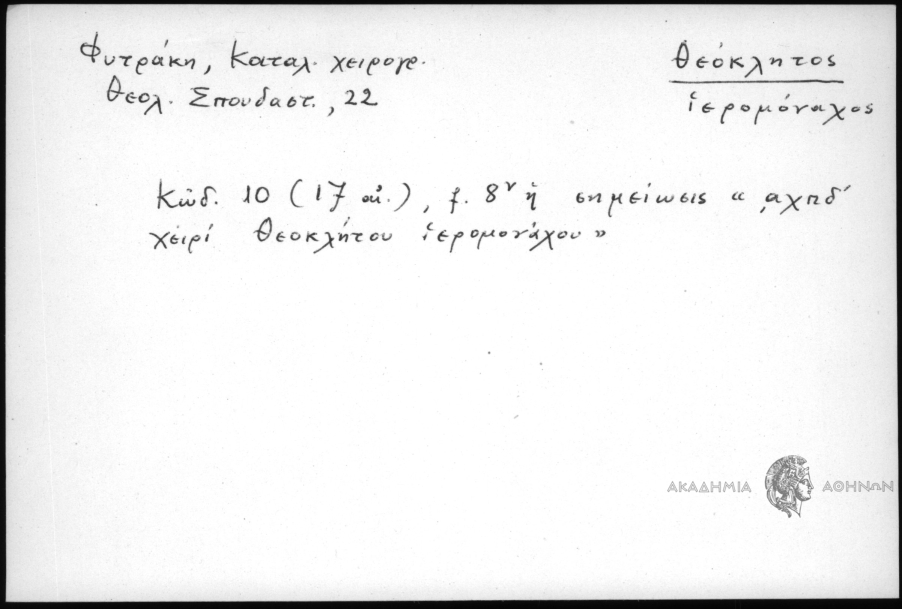 Φυτράκη, Καταλ. χειρογρ.
Θεολ. Σπουδαστ., 22
Θεόκλητος
ἱερομόναχος
Κώδ. 10 (17 αἰ.), f. 8ᵛ ἡ σημείωσις « ͵αχπδ´
χειρί Θεοκλήτου ἱερομονάχου »
ΑΚΑΔΗΜΙΑ ΑΘΗΝΩΝ